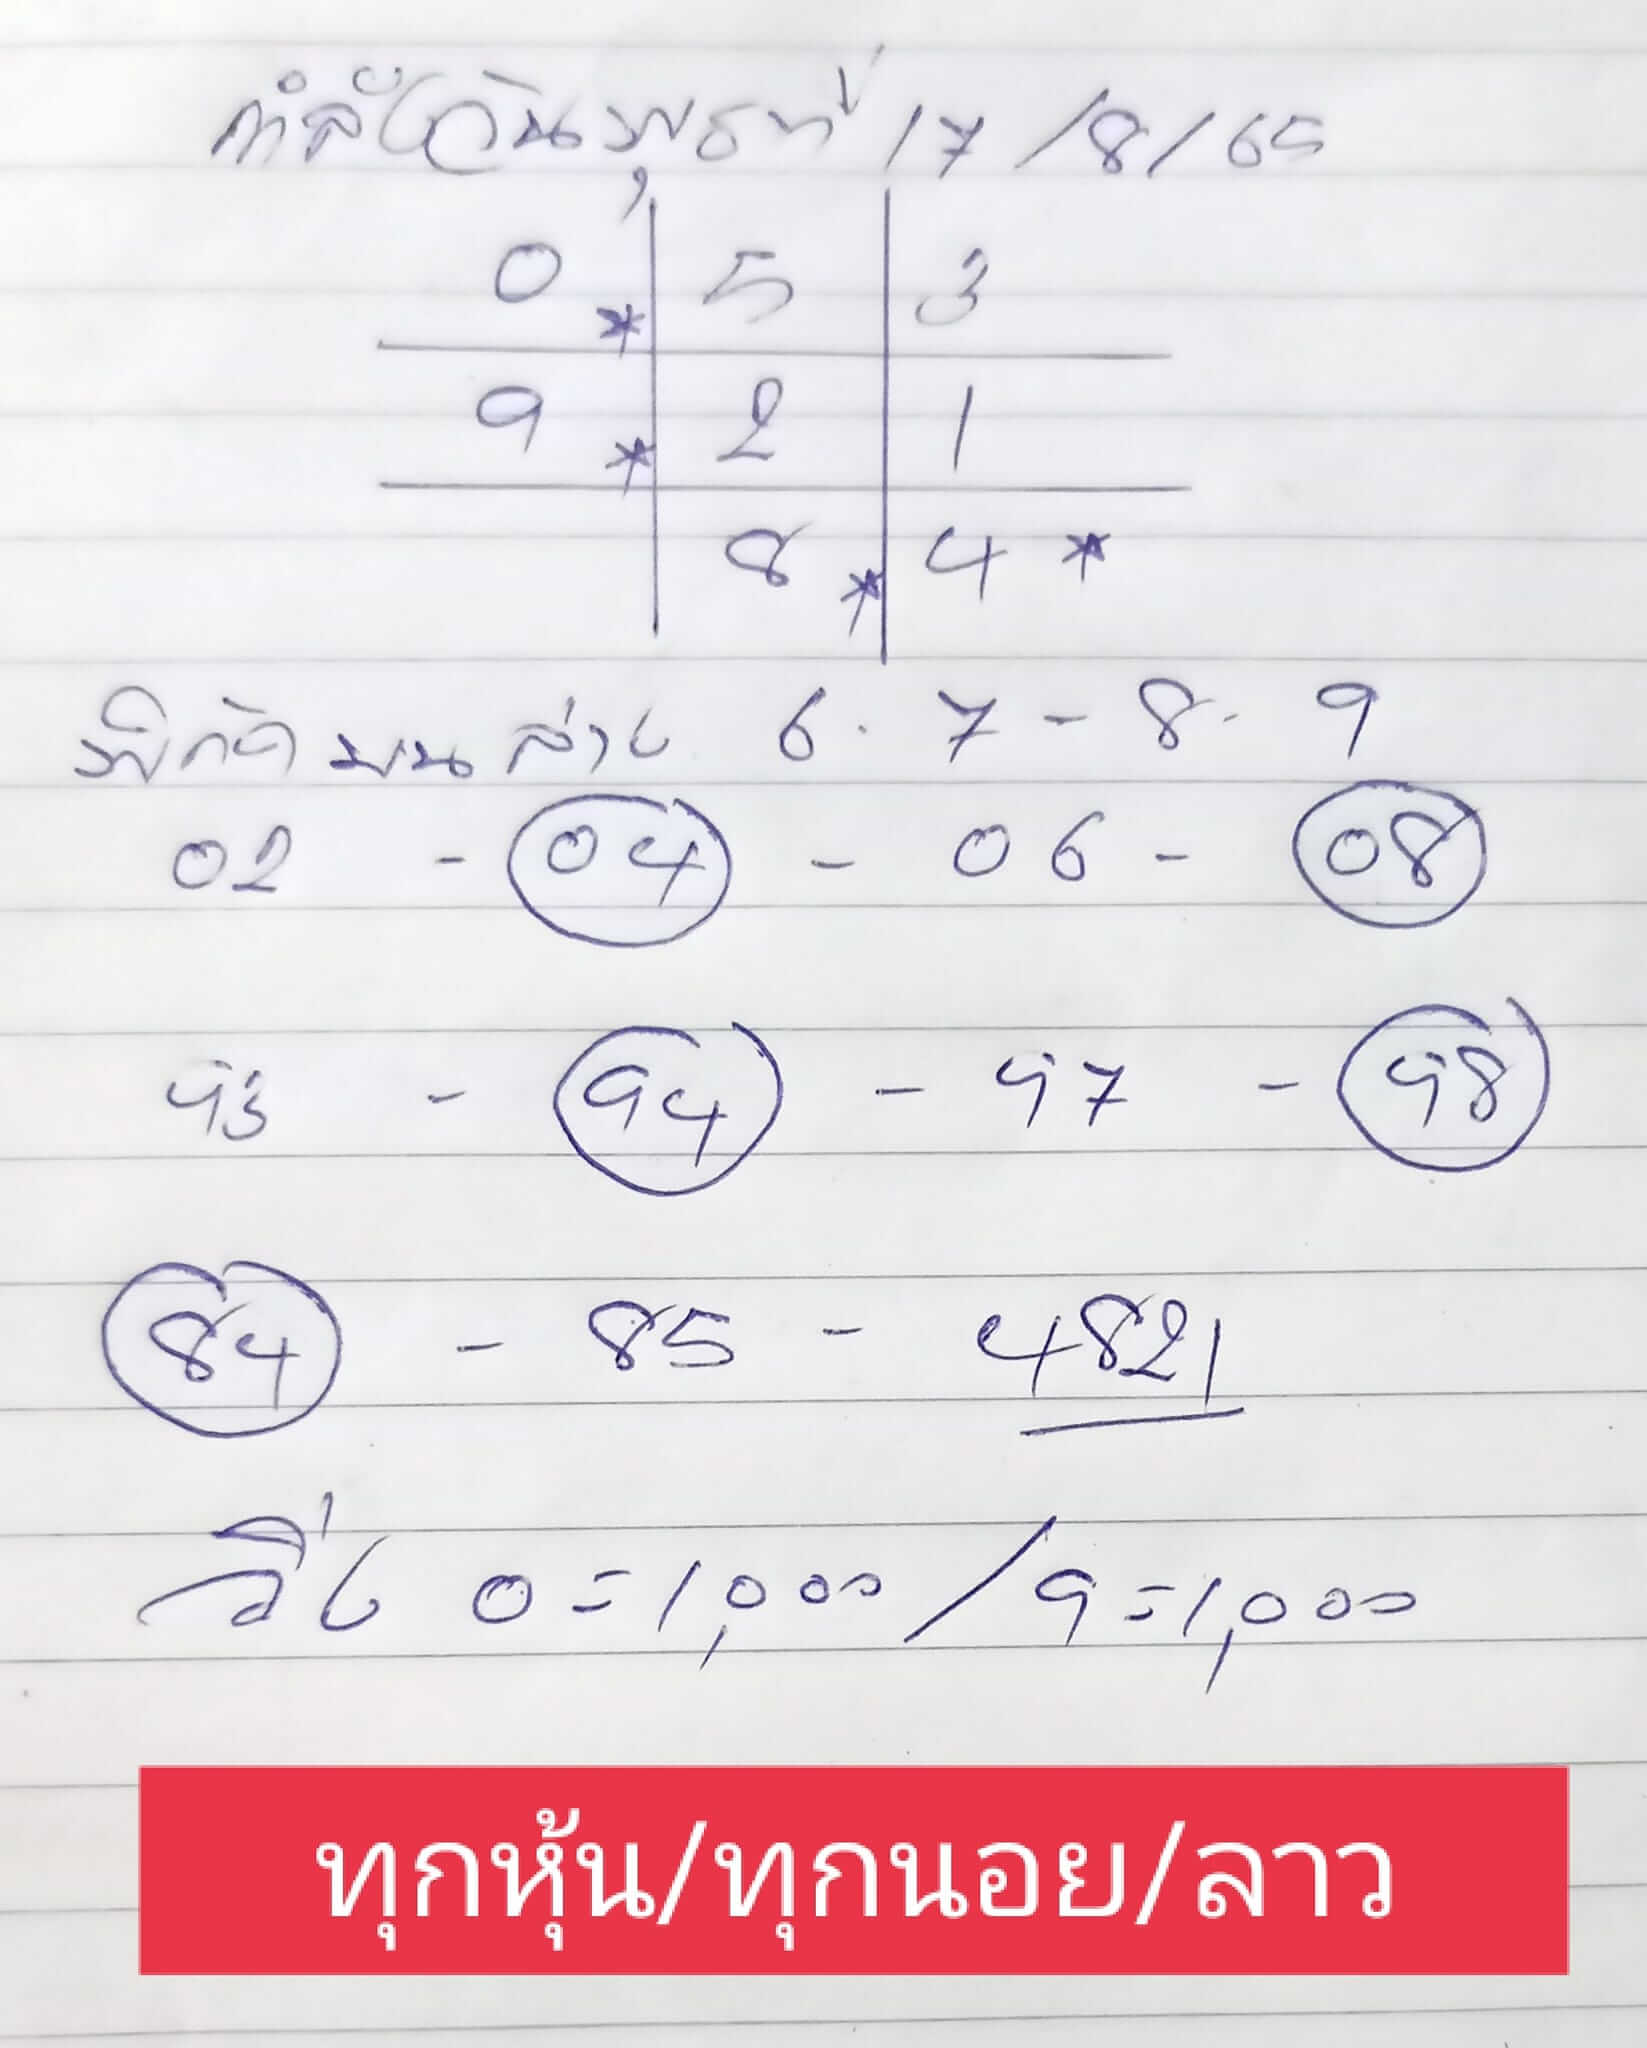 กำลังวันพุธที่ 17/8/65
0 * 5 3
9 * 2 1
8 * 4 *
พิกัด บน ล่าง 6. 7 - 8. 9
02 - 04 - 06 - 08
93 - 94 - 97 - 98
84 - 85 - 4821
วิ่ง 0 = 1,000 / 9 = 1,000
ทุกหุ้น/ทุกนอย/ลาว